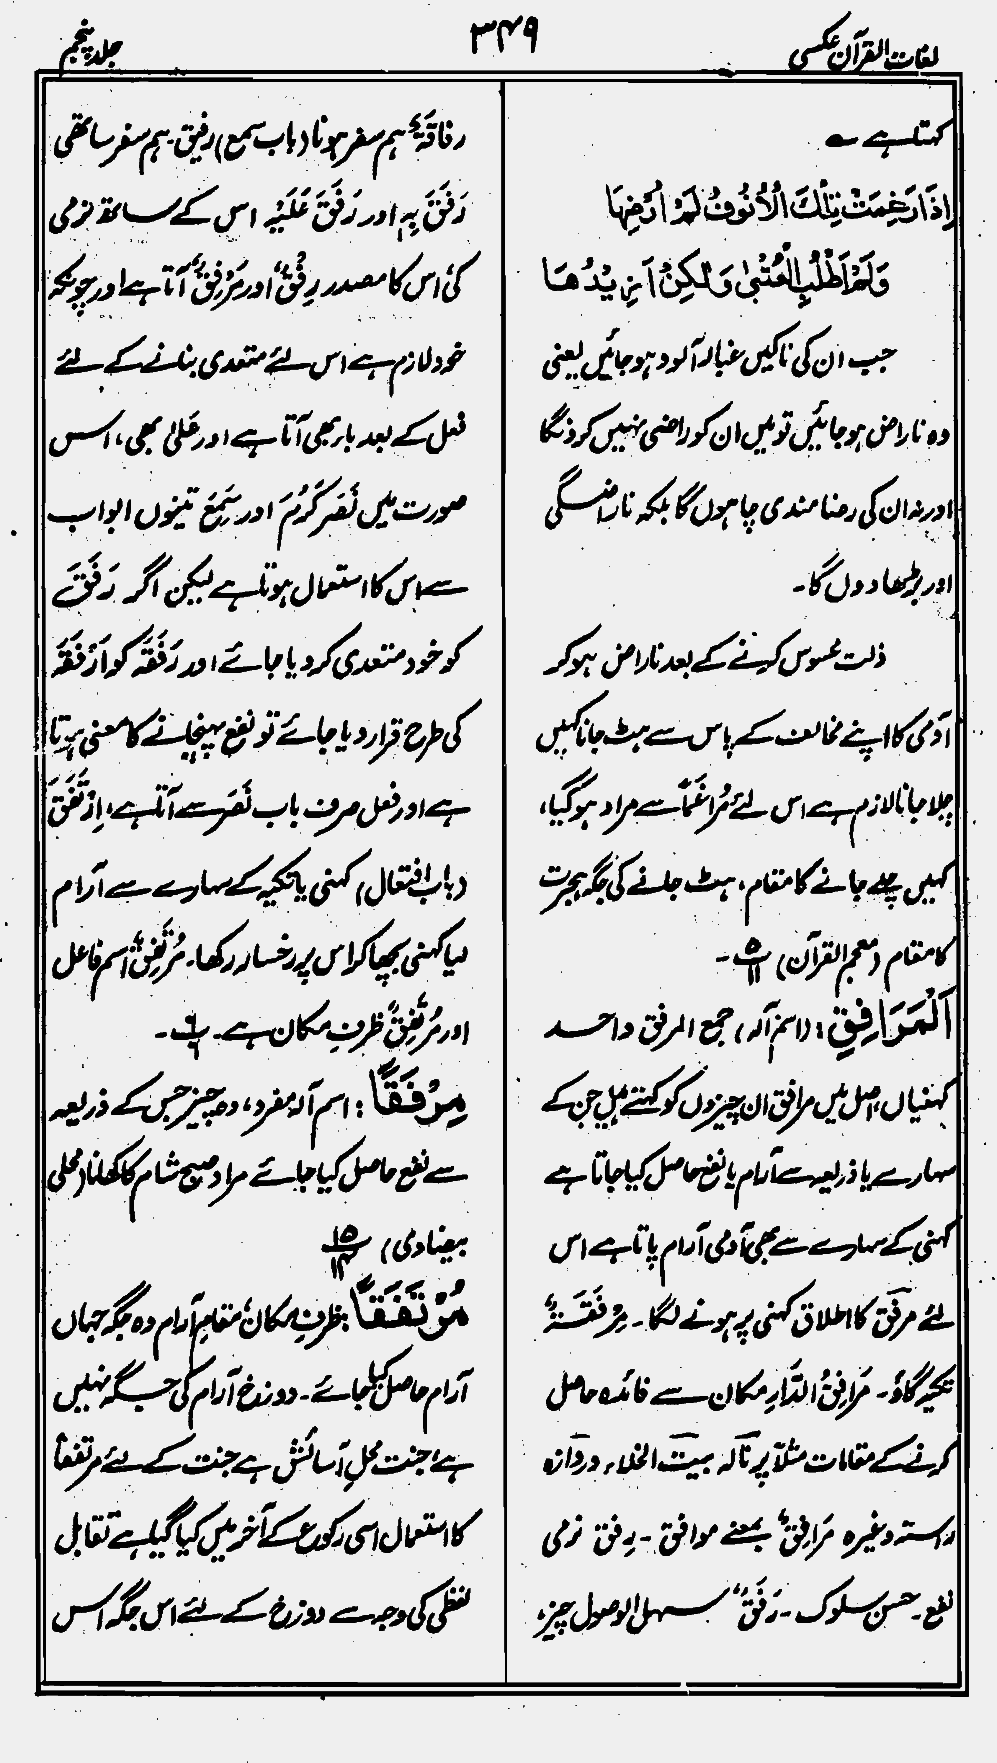 لغات القرآن عکسی
۳۴۹
جلد پنجم
کہتا ہے ؎
اِذَا رَغِمَتْ تِلْكَ الْاُنُوْفُ لَمْ اُرْضِهَا
وَلَمْ اَطْلُبِ الْعُتْبٰى وَلٰكِنْ اَزِيْدُهَا
جب ان کی ناکیں غبار آلود ہوجائیں یعنی
وہ ناراض ہوجائیں تو میں ان کو راضی نہیں کرونگا
اور نہ ان کی رضامندی چاہوں گا بلکہ ناراضگی
اور بڑھا دوں گا۔
ذلت محسوس کرنے کے بعد ناراض ہوکر
آدمی کا اپنے مخالف کے پاس سے ہٹ جانا کہیں
چلا جانا لازم ہے اس لئے مُرَاغَمًا سے مراد ہوگیا،
کہیں چلے جانے کا مقام، ہٹ جانے کی جگہ ہجرت
کا مقام (معجم القرآن) ۵/۱۱۔
اَلْمَرَافِقِ: (اسم آلہ) جمع المرفق واحد
کہنیاں، اصل میں مرافق ان چیزوں کو کہتے ہیں جن کے
سہارے یا ذریعہ سے آرام یا نفع حاصل کیا جاتا ہے
کہنی کے سہارے سے بھی آدمی آرام پاتا ہے اس
لئے مرفق کا اطلاق کہنی پر ہونے لگا۔ مِرْفَقَةٌ
تکیہ گاؤ۔ مَرَافِقُ الدَّارِ مکان سے فائدہ حاصل
کرنے کے مقامات مثلاً پرنالہ بیت الخلاء دروازہ
راستہ وغیرہ مَرَافِقٌ بمعنے موافق۔ رِفق نرمی
نفع۔ حسن سلوک۔ رَفَقٌ سہل الوصول چیز،
رفاقَۃٌ ہم سفر ہونا (باب سمع) رفیق۔ ہم سفر ساتھی
رَفَقَ بِہٖ اور رَفَقَ عَلَیْہِ اس کے ساتھ نرمی
کی، اس کا مصدر رِفْقٌ اور مَرْفِقٌ آتا ہے اور چونکہ
خود لازم ہے اس لئے متعدی بنانے کے لئے
فعل کے بعد باء بھی آتا ہے اور عَلیٰ بھی، اس
صورت میں نَصَرَ کَرُمَ اور سَمِعَ تینوں ابواب
سے اس کا استعمال ہوتا ہے لیکن اگر رَفَقَ
کو خود متعدی کردیا جائے اور رَفَقَہٗ کو اَرْفَقَہٗ
کی طرح قرار دیا جائے تو نفع پہنچانے کا معنی ہوتا
ہے اور فعل صرف باب نَصَرَ سے آتا ہے، اِرْتَفَقَ
(باب افتعال) کہنی یا تکیہ کے سہارے سے آرام
لیا کہنی بچھا کر اس پر رخسار رکھا۔ مُرْتَفِقٌ اسم فاعل
اور مُرْتَفَقٌ ظرفِ مکان ہے۔ ۶/۶۔
مِرْفَقًا: اسم آلہ مفرد، وہ چیز جس کے ذریعہ
سے نفع حاصل کیا جائے مراد صبح شام کا کھانا (محلی
بیضاوی) ۱۵/۱۴
مُرْتَفَقًا: ظرفِ مکان، مقامِ آرام وہ جگہ جہاں
آرام حاصل کیا جائے۔ دوزخ آرام کی جگہ نہیں
ہے، جنت محلِ آسائش ہے جنت کے لئے مرتفقًا
کا استعمال اسی رکوع کے آخر میں کیا گیا ہے تقابل
لفظی کی وجہ سے دوزخ کے لئے اس جگہ اس